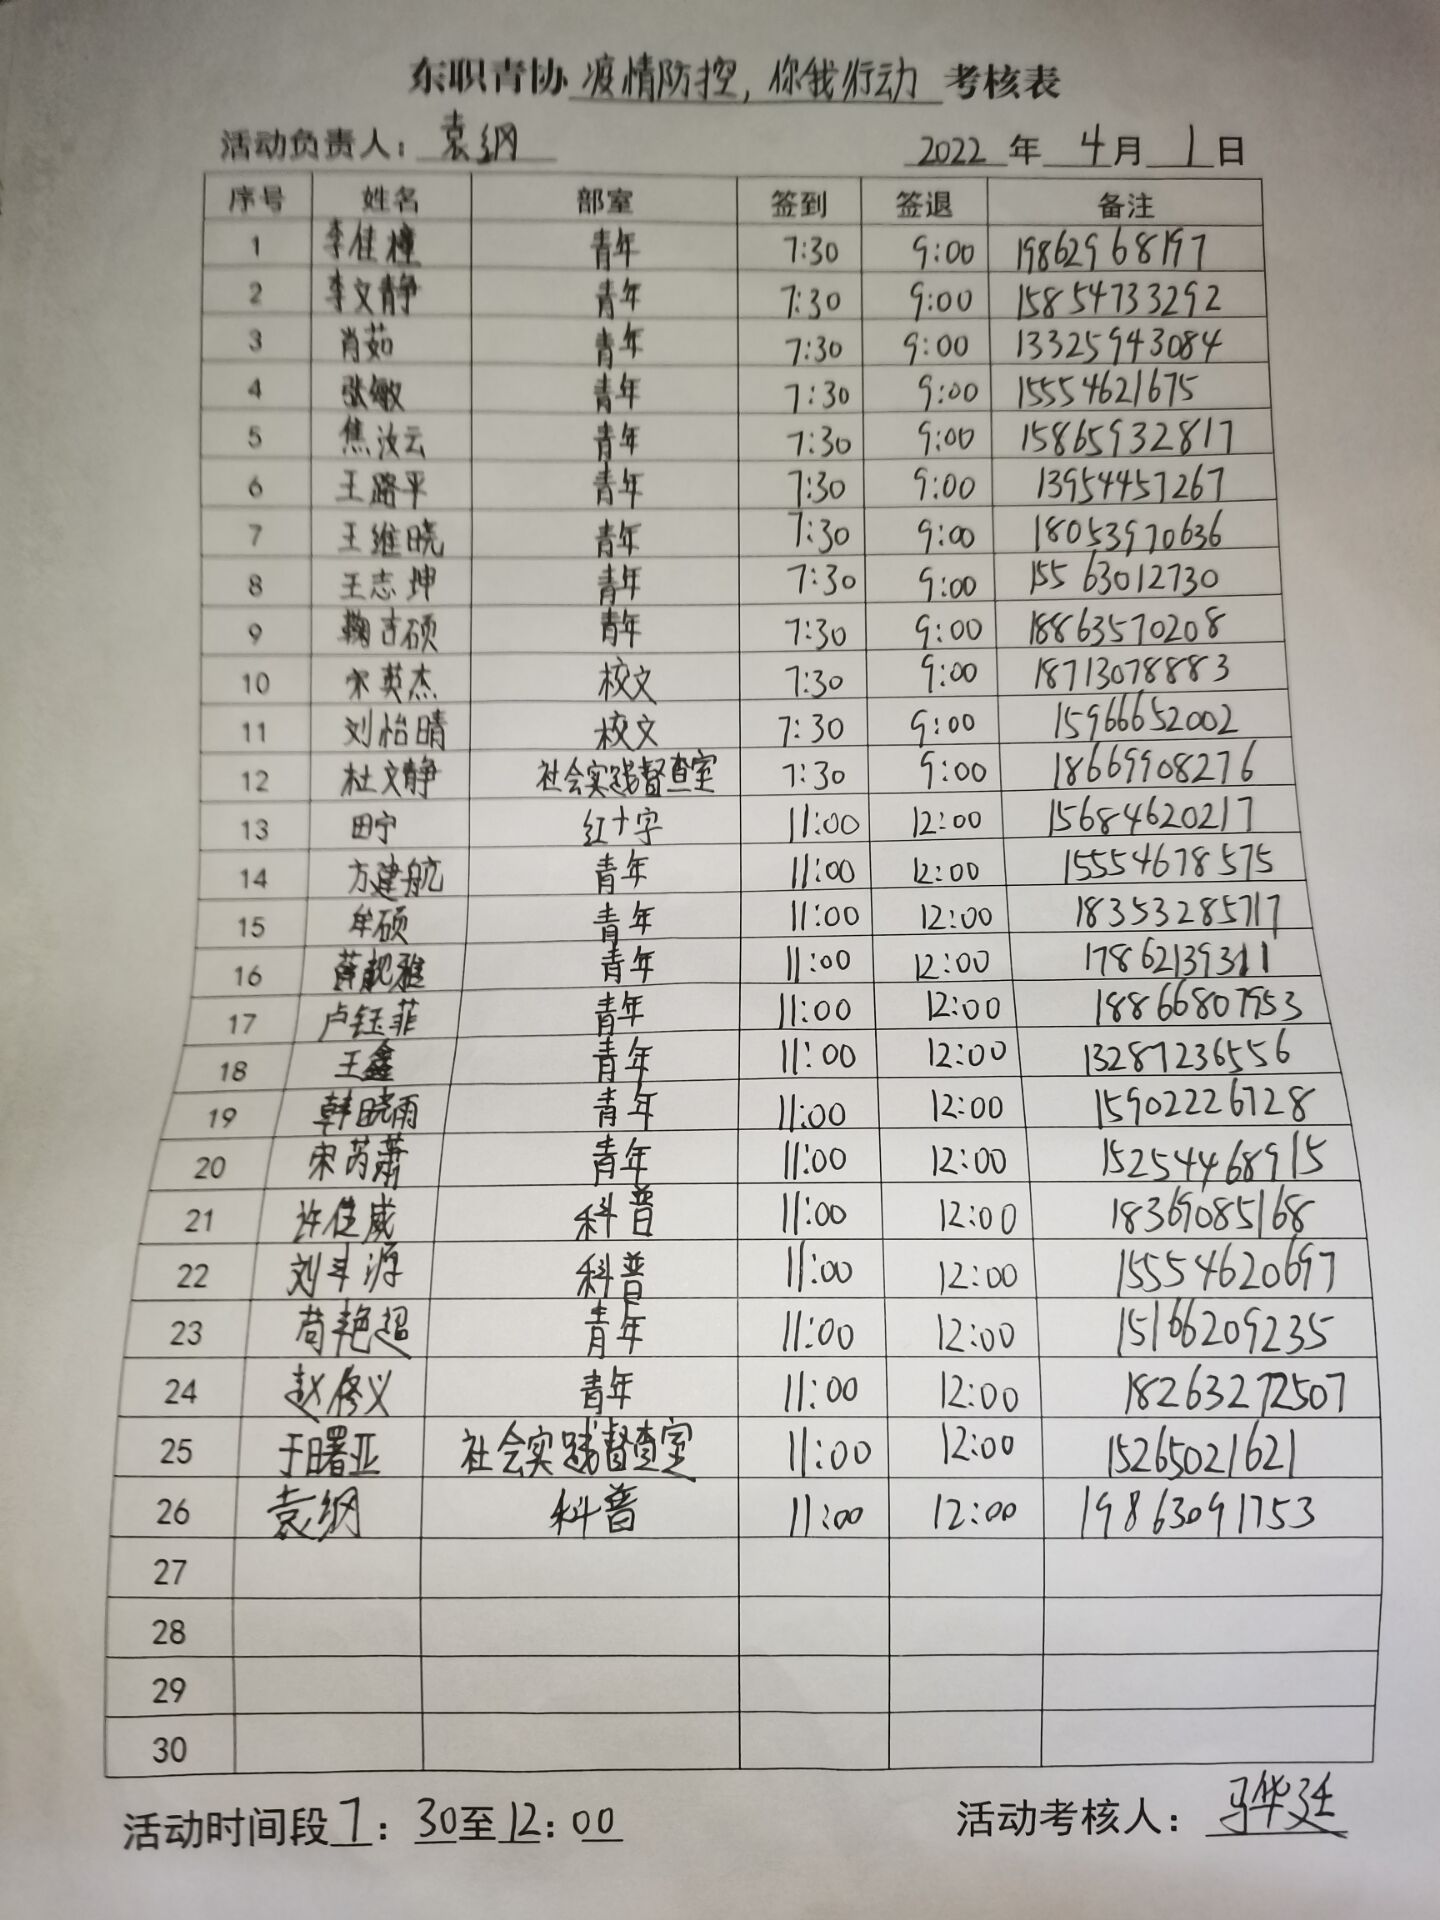 东职青协 疫情防控，你我行动 考核表
活动负责人：袁纲 2022 年 4 月 1 日
序号 姓名 部室 签到 签退 备注
1 李佳橦 青年 7:30 9:00 19862968197
2 李文静 青年 7:30 9:00 15854733292
3 肖茹 青年 7:30 9:00 13325943084
4 张敏 青年 7:30 9:00 15554621675
5 焦汝云 青年 7:30 9:00 15865932817
6 王路平 青年 7:30 9:00 13954457267
7 王维晓 青年 7:30 9:00 18053970636
8 王志坤 青年 7:30 9:00 15563012730
9 鞠吉硕 青年 7:30 9:00 18863570208
10 宋英杰 校文 7:30 9:00 18713078883
11 刘怡晴 校文 7:30 9:00 15966652002
12 杜文静 社会实践督查室 7:30 9:00 18669908276
13 田宁 红十字 11:00 12:00 15684620217
14 方建航 青年 11:00 12:00 15554678575
15 牟硕 青年 11:00 12:00 18353285717
16 青年 11:00 12:00 17862139311
17 卢钰菲 青年 11:00 12:00 18866807953
18 王鑫 青年 11:00 12:00 13287236556
19 韩晓雨 青年 11:00 12:00 15902226728
20 宋芮萧 青年 11:00 12:00 15254468915
21 许佳威 科普 11:00 12:00 18369085168
22 刘丰源 科普 11:00 12:00 15554620697
23 苟艳超 青年 11:00 12:00 15166209235
24 赵修义 青年 11:00 12:00 18263272507
25 于曙亚 社会实践督查室 11:00 12:00 15265021621
26 袁纲 科普 11:00 12:00 19863091753
27
28
29
30
活动时间段 7：30至12：00 活动考核人：马华廷